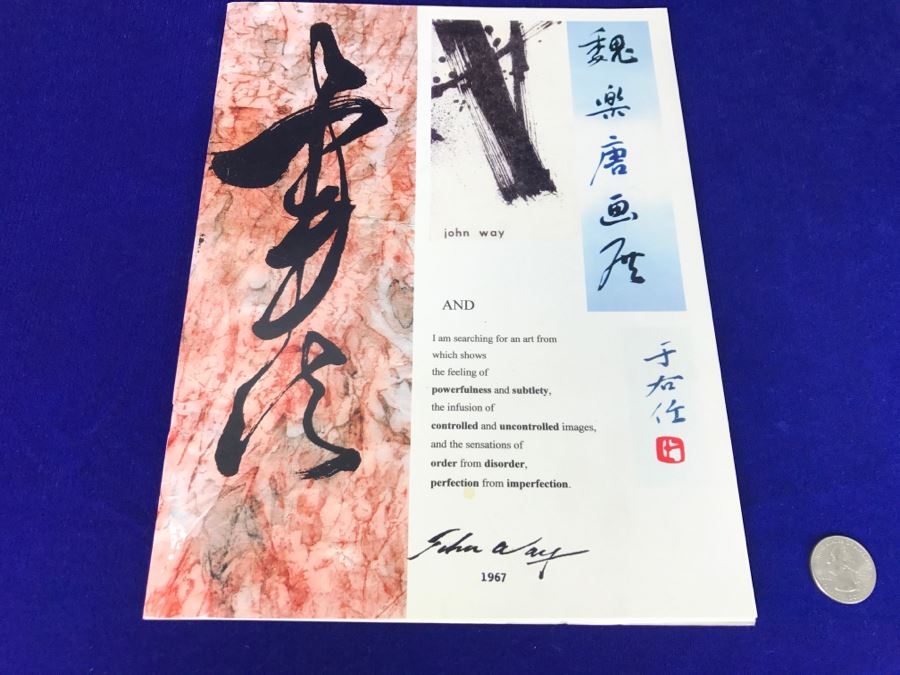 書法
john way
魏楽唐画展
于右任
AND
I am searching for an art from
which shows
the feeling of
powerfulness and subtlety,
the infusion of
controlled and uncontrolled images,
and the sensations of
order from disorder,
perfection from imperfection.
John Way
1967